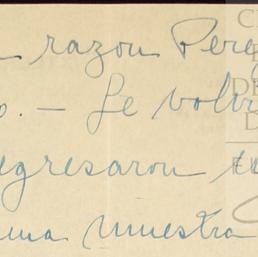 razon Pere
o. — Se volvi
egresaron
una muestra